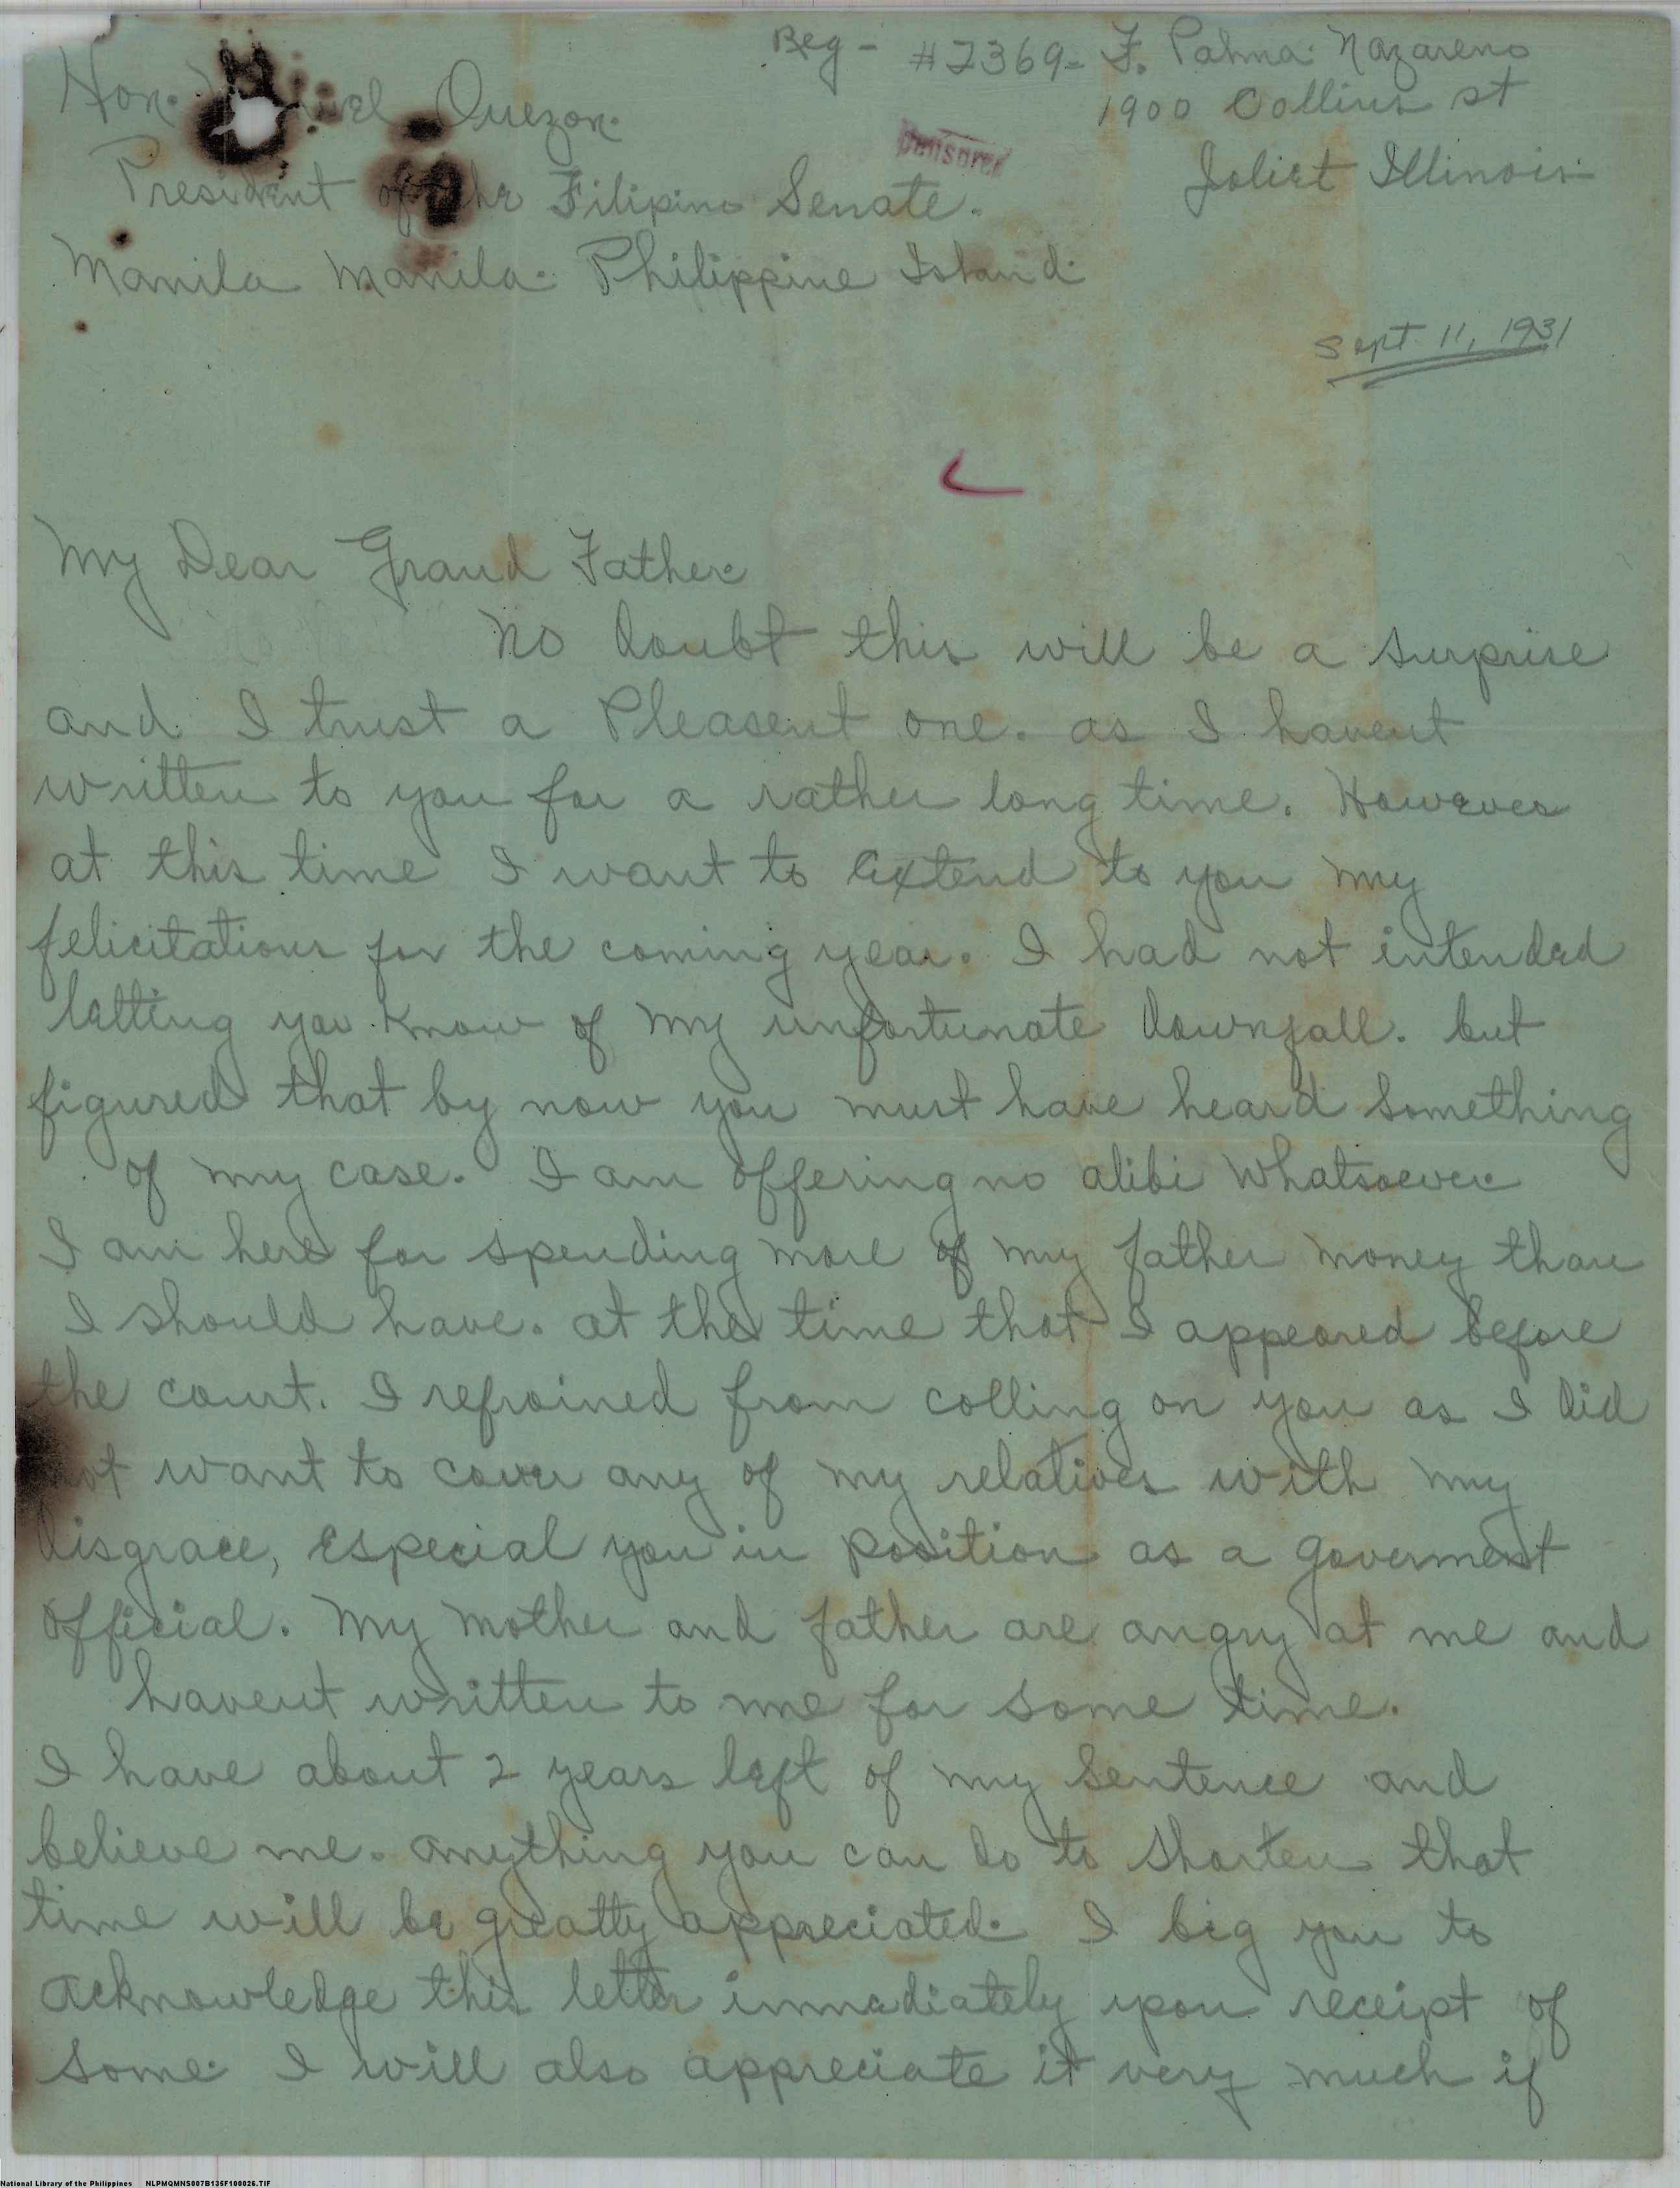 Reg - #2369 - F. Palma Nazareno
1900 Collins st
Joliet Illinois
Hon. Quezon.
censored
President of the Filipino Senate.
Manila Manila. Philippine Island.
Sept. 11, 1931
My Dear Grand Father.
No doubt this will be a surprise
and I trust a Pleasent one. as I havent
written to you for a rather long time. However
at this time I want to extend to you my
felicitations for the coming year. I had not intended
letting you know of my unfortunate downfall. but
figured that by now you must have heard something
of my case. I am offering no alibi whatsoever
I am here for spending more of my father money than
I should have. at the time that I appeared before
the court. I refrained from calling on you as I did
not want to cover any of my relatives with my
disgrace, especial you in position as a goverment
official. My mother and father are angry at me and
havent written to me for some time.
I have about 2 years left of my sentence and
believe me. anything you can do to shorten that
time will be greatty appreciated. I beg you to
acknowledge this letter immediately upon receipt of
same. I will also appreciate it very much if
National Library of the Philippines NLPMQMNS007B135F100026.TIF